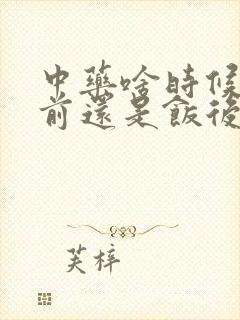 中藥啥時候
前還是飯後
芙梓